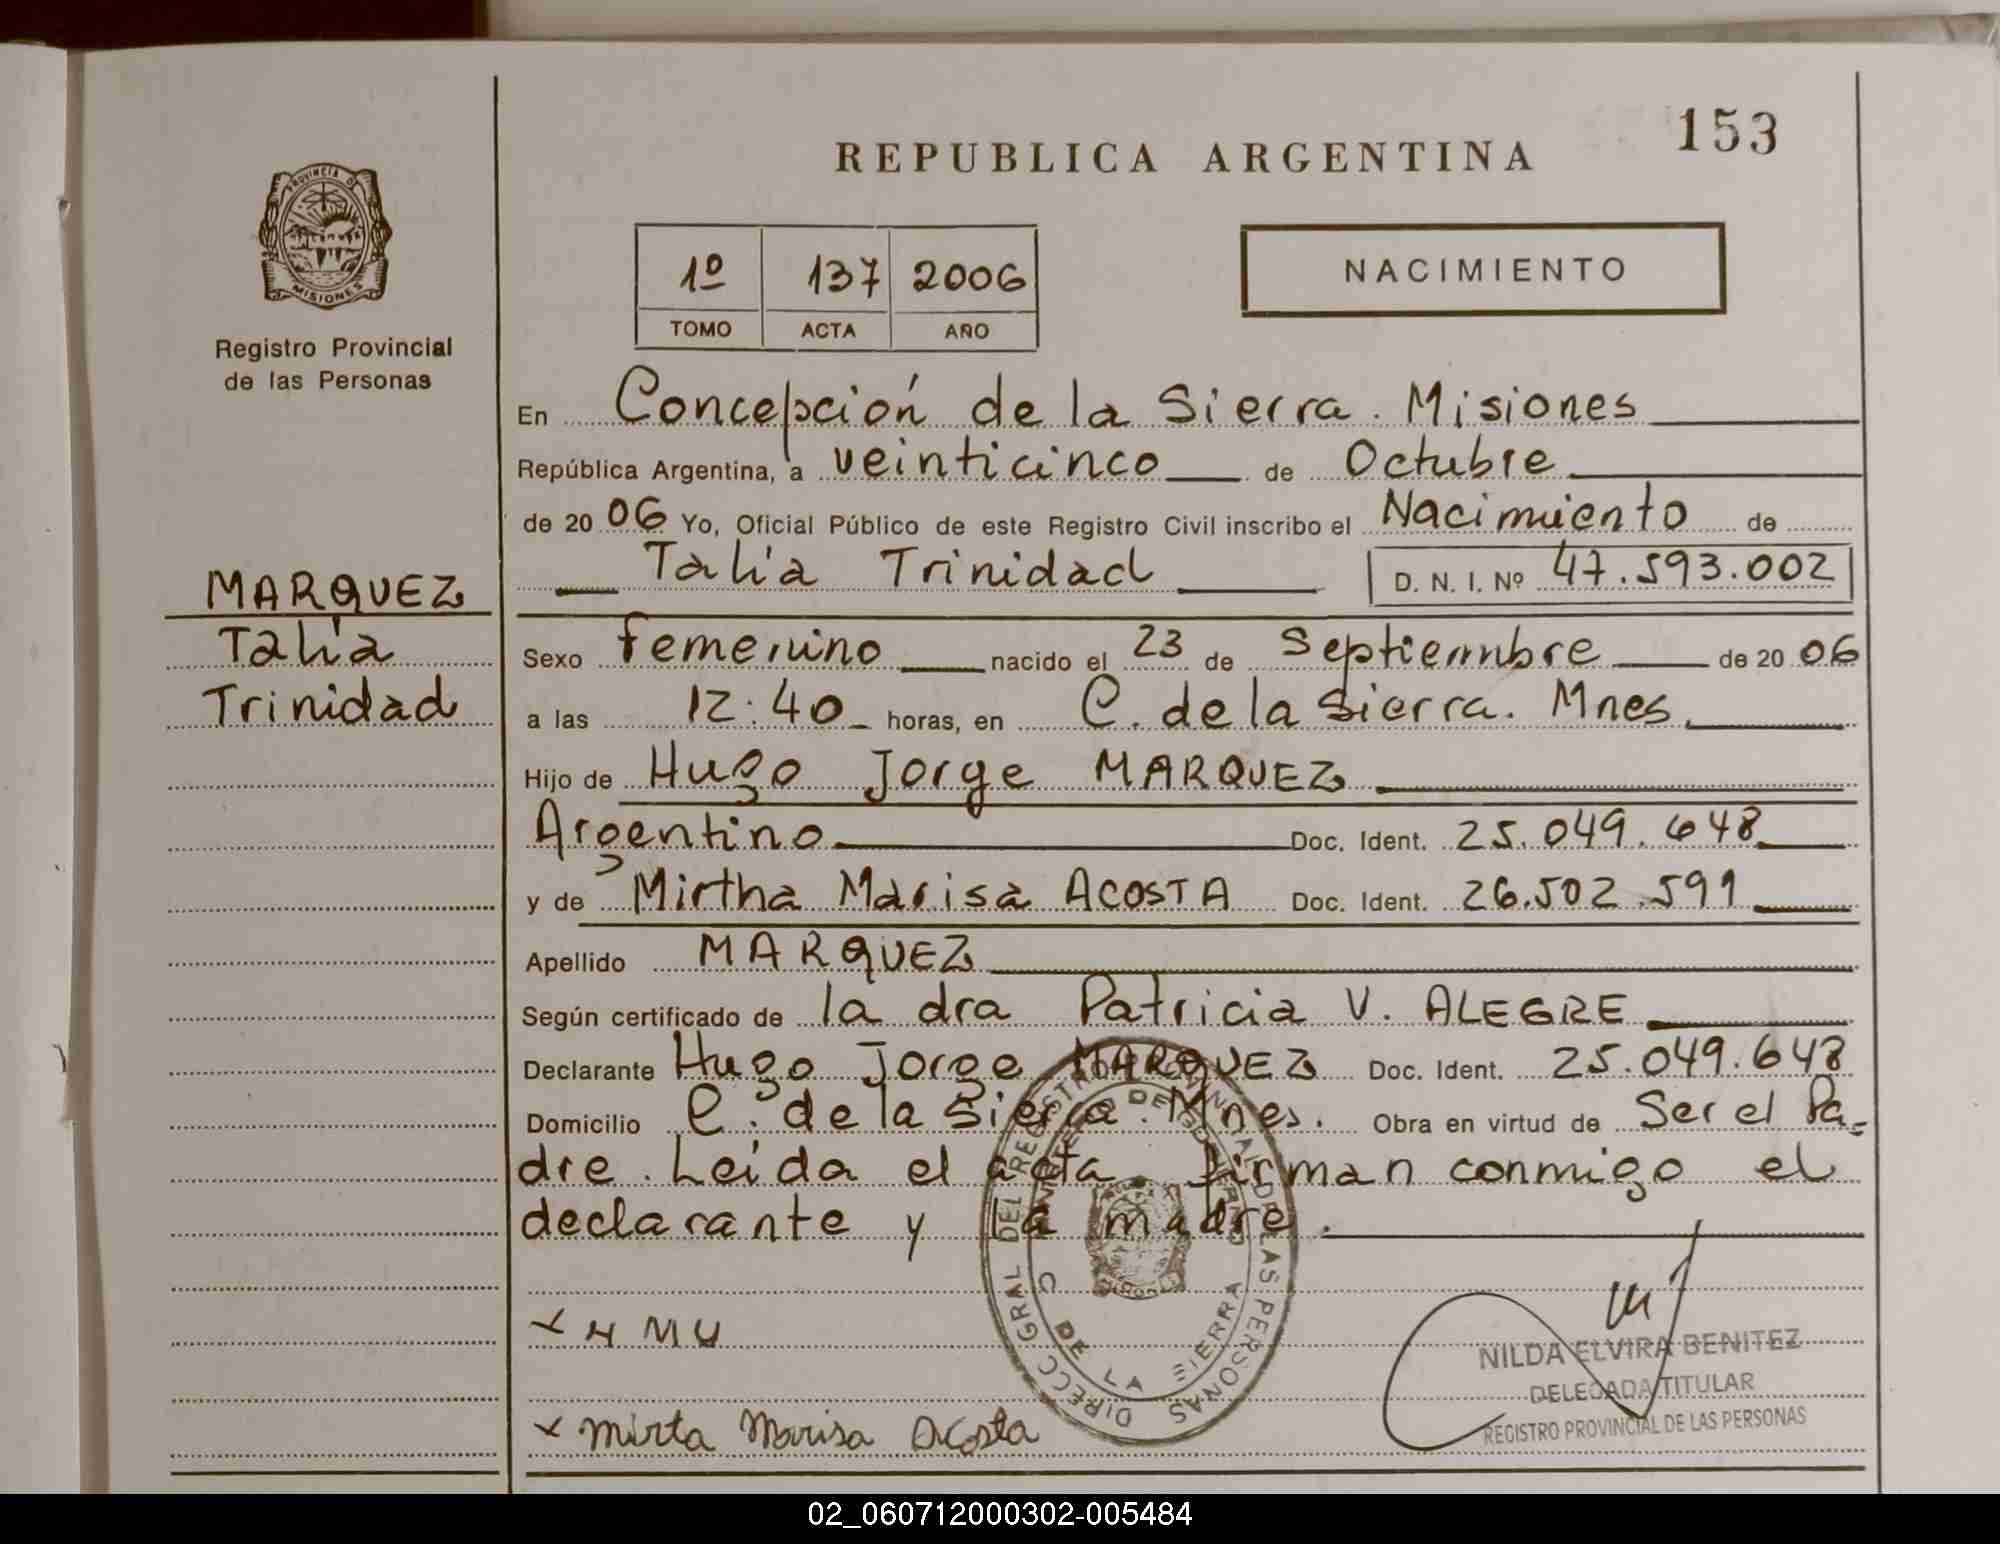 153
REPUBLICA ARGENTINA
PROVINCIA DE
MISIONES
Registro Provincial
de las Personas
1º 137 2006
TOMO ACTA AÑO
NACIMIENTO
En Concepción de la Sierra. Misiones
República Argentina, a veinticinco de Octubre
de 2006 Yo, Oficial Público de este Registro Civil inscribo el Nacimiento de
Talía Trinidad D. N. I. Nº 47.593.002
MARQUEZ
Talía
Trinidad
Sexo femenino nacido el 23 de Septiembre de 2006
a las 12:40 horas, en C. de la Sierra. Mnes.
Hijo de Hugo Jorge MARQUEZ
Argentino Doc. Ident. 25.049.648
y de Mirtha Marisa ACOSTA Doc. Ident. 26.502.591
Apellido MARQUEZ
Según certificado de la dra Patricia V. ALEGRE
Declarante Hugo Jorge MARQUEZ Doc. Ident. 25.049.648
Domicilio C. de la Sierra. Mnes. Obra en virtud de Ser el Pa=
dre. Leída el acta firman conmigo el
declarante y la madre.
DIRECC GRAL DEL REGISTRO DE LAS PERSONAS
C DE LA SIERRA
x H M U
x Mirta Marisa Acosta
NILDA ELVIRA BENITEZ
DELEGADA TITULAR
REGISTRO PROVINCIAL DE LAS PERSONAS
02_060712000302-005484